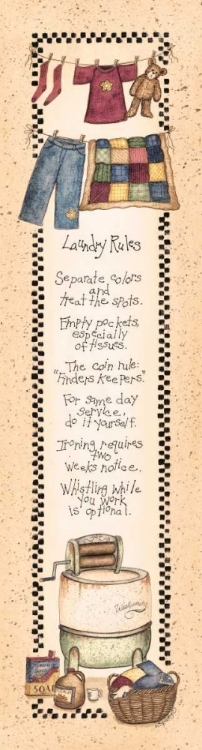 Laundry Rules
Separate colors
and
treat the spots.
Empty pockets,
especially
of tissues.
The coin rule:
"finders keepers."
For same day
service,
do it yourself.
Ironing requires
two
weeks notice.
Whistling while
you work
is optional.
SOAP